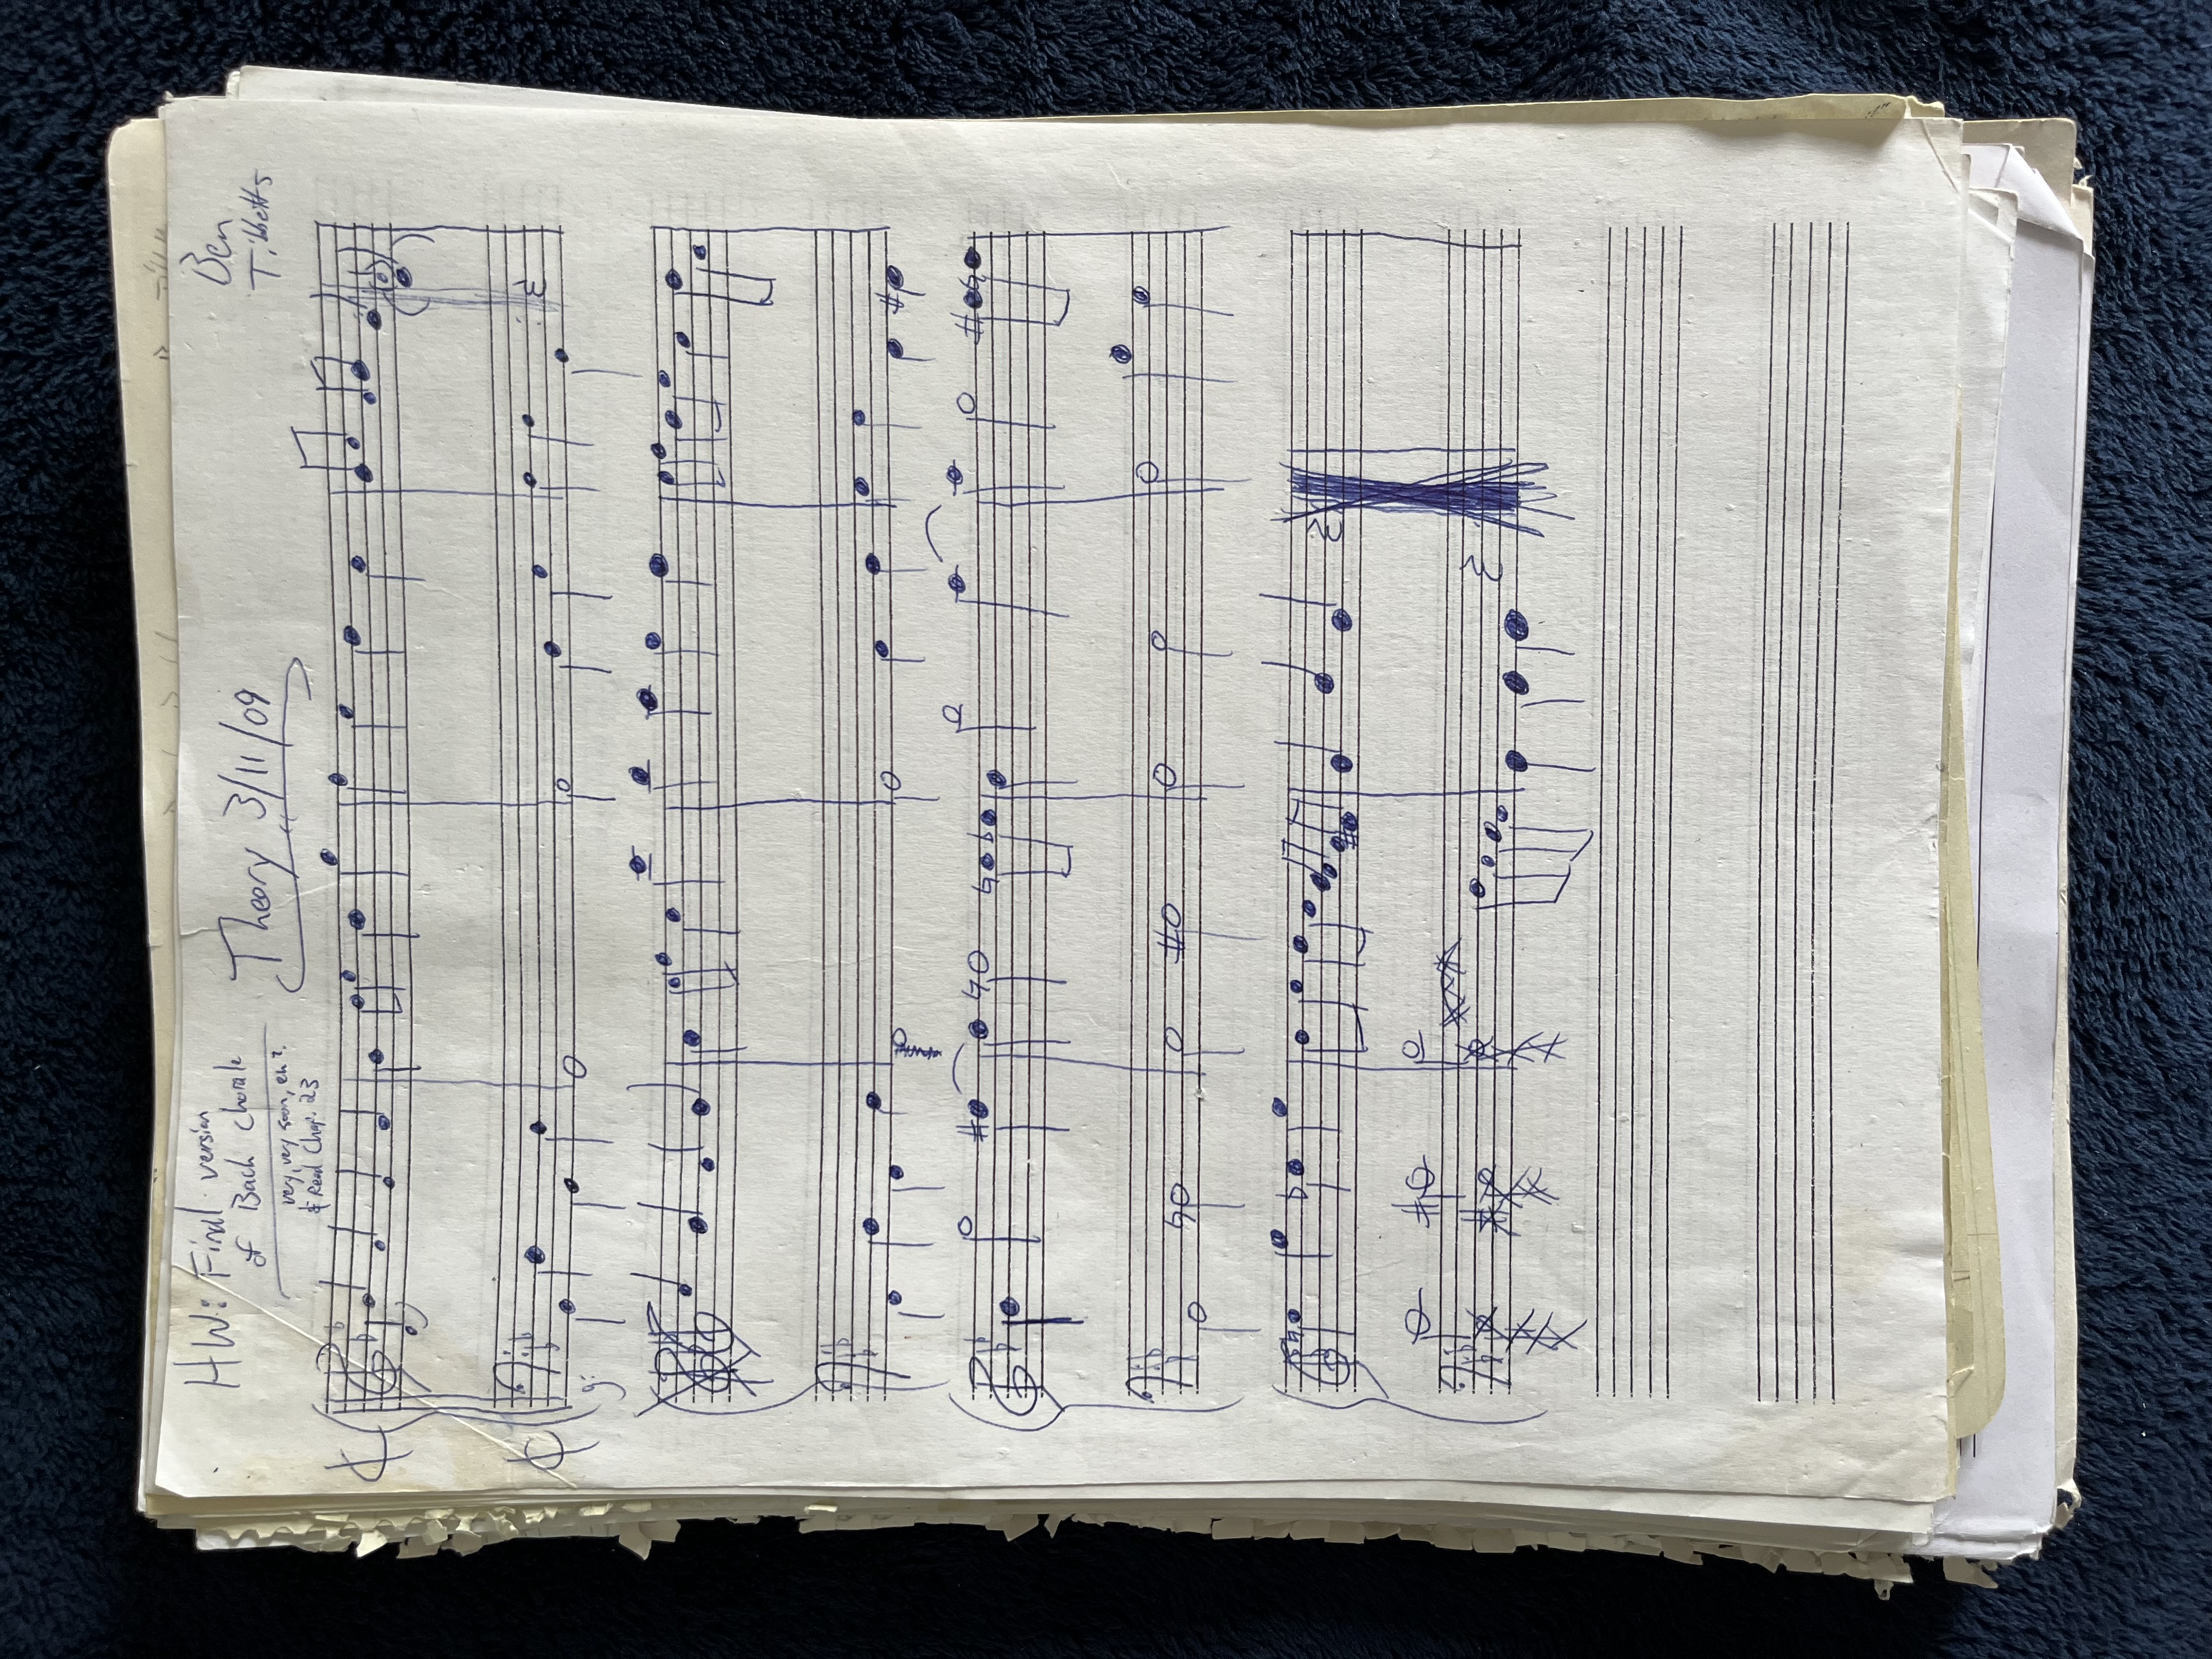 HW: Final version
of Bach Chorale
very, very soon, eh?
& Read Chap. 23
Theory 3/11/09
Ben
Tibbetts
g: